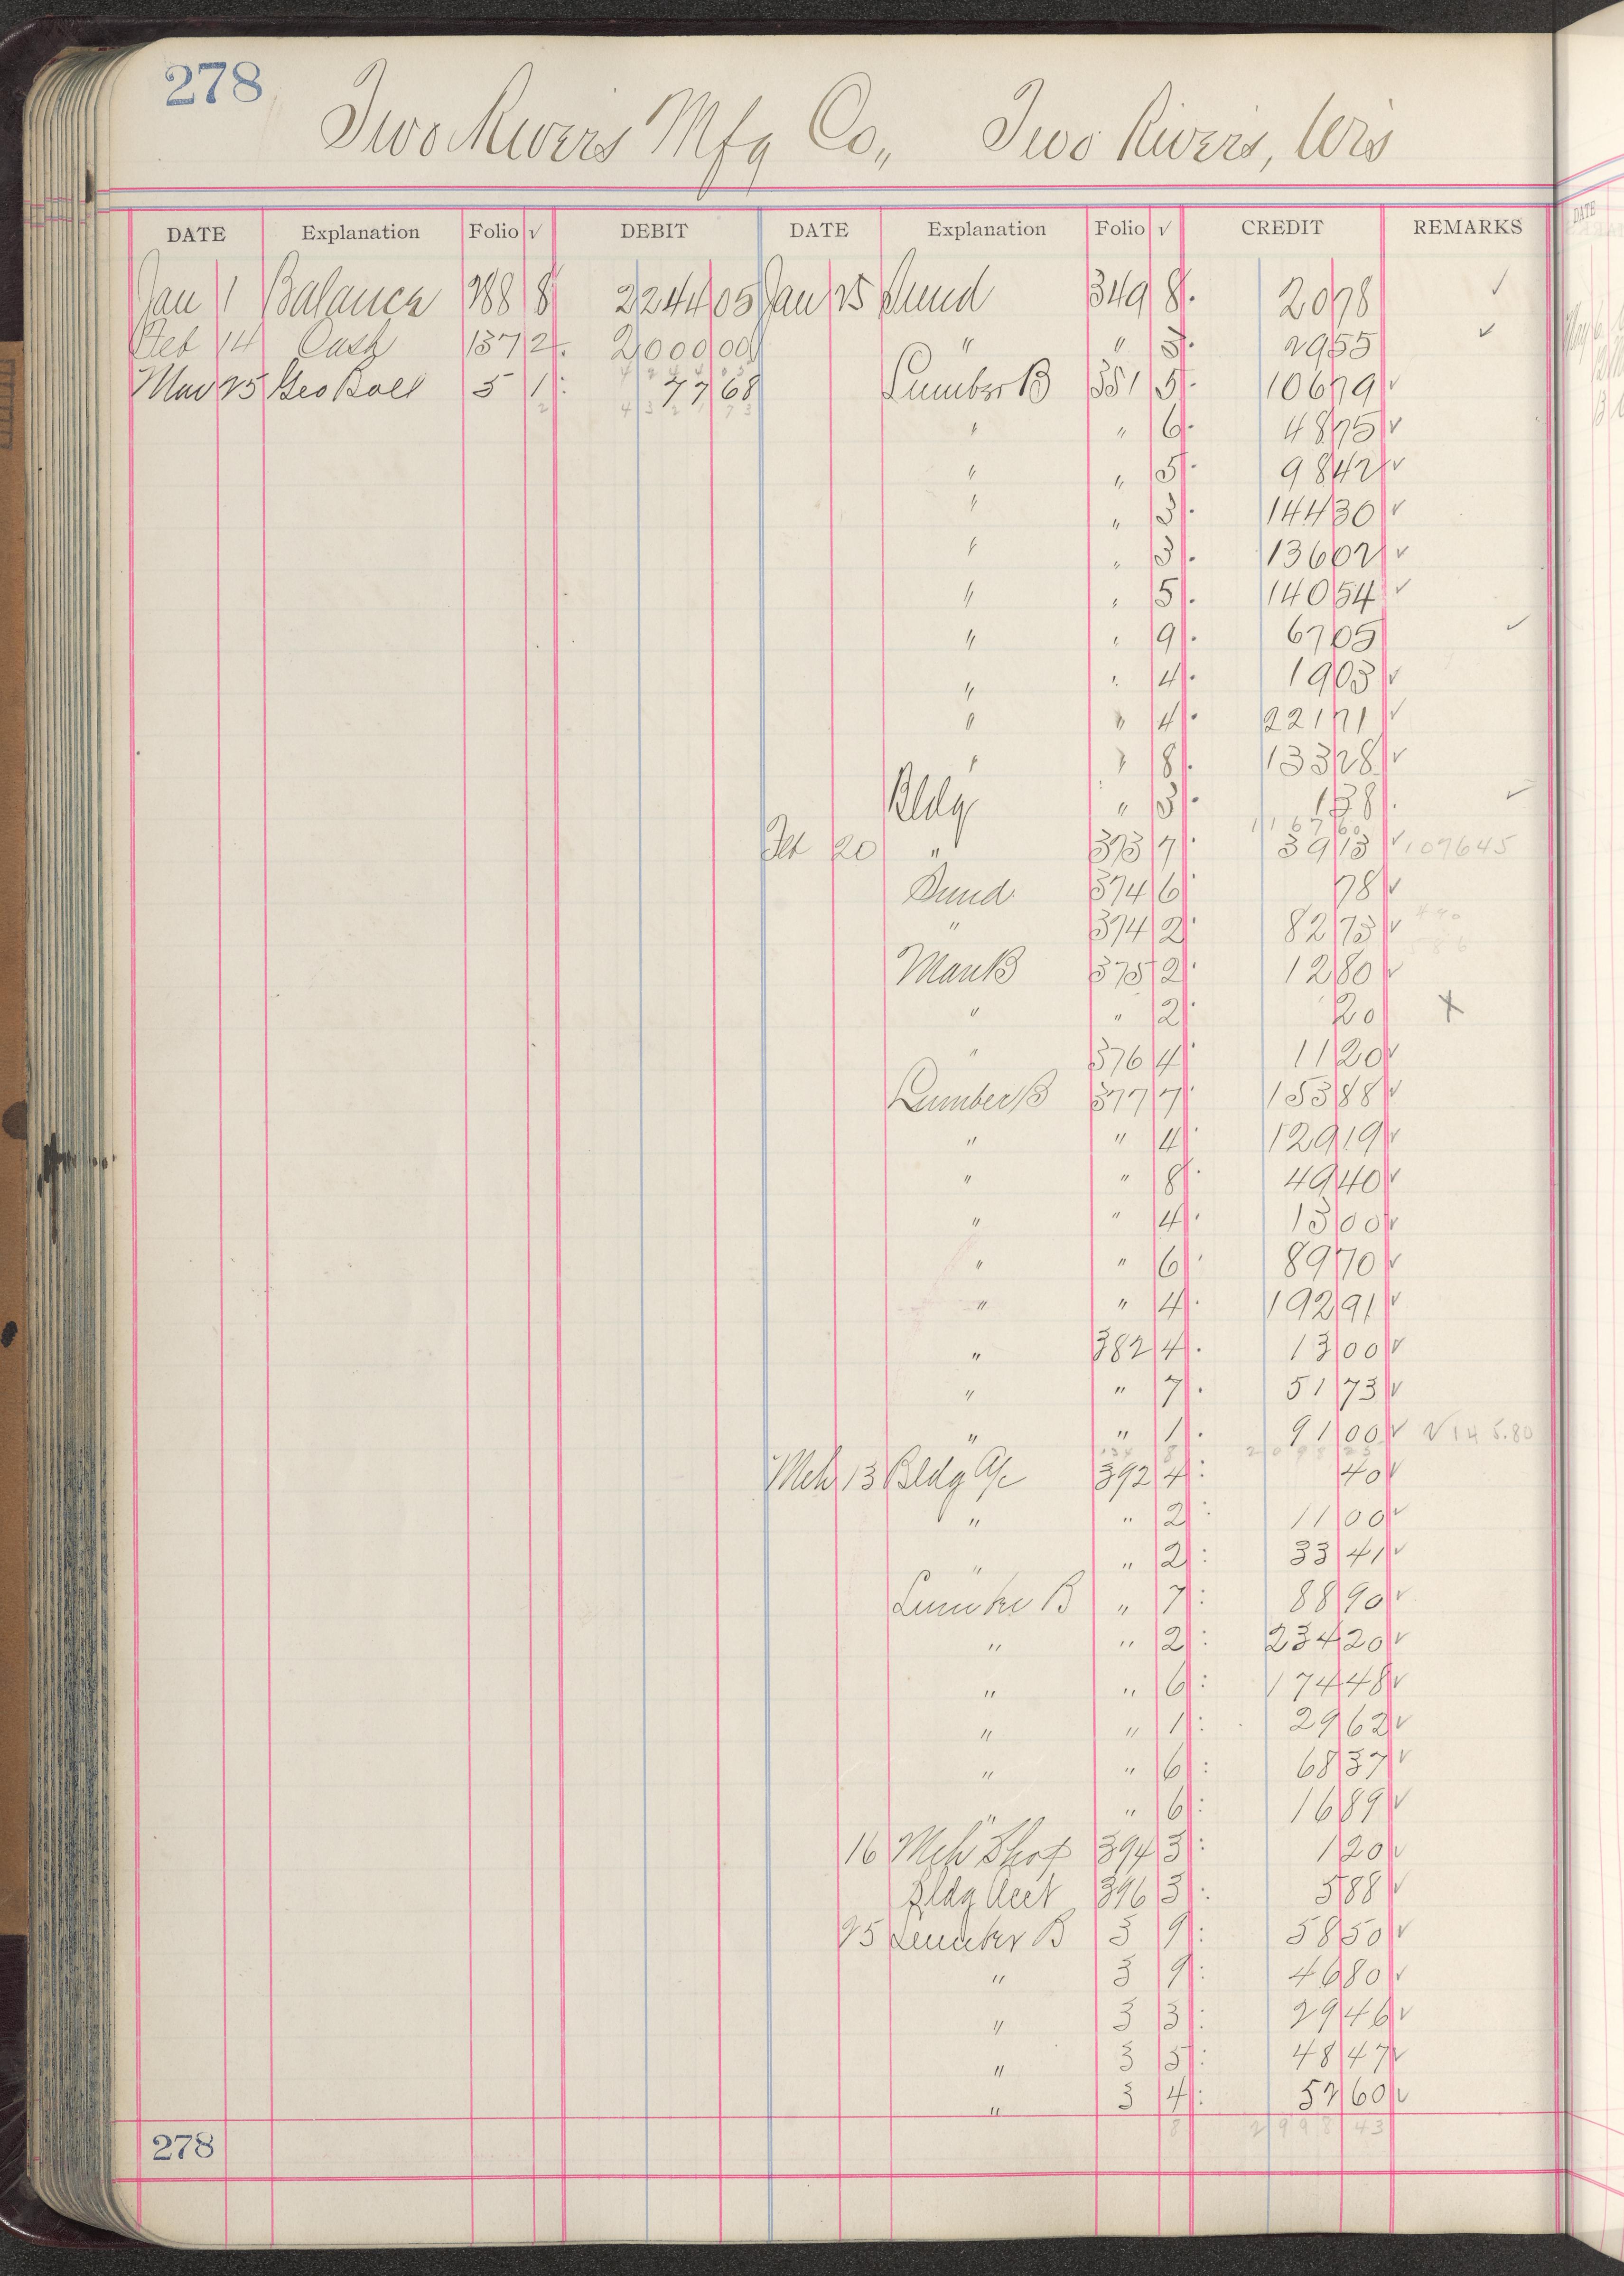 278
Two Rivers Mfg Co., Two Rivers, Wis
DATE Explanation Folio √ DEBIT DATE Explanation Folio √ CREDIT REMARKS
Jan 1 Balance 288 8 2244 05 Jan 25 Sund 349 8. 20 78 ✓
Feb 14 Cash 137 2. 2000 00 " " 3. 29 55 ✓
4244 05
Mar 25 Geo Boll 5 1: 77 68 Lumber B 351 5. 106 79 ✓
2 4321 73
" " 6. 48 75 ✓
" " 5. 98 42 ✓
" " 3. 144 30 ✓
" " 3. 136 02 ✓
" " 5. 140 54 ✓
" " 9. 67 05 ✓
" " 4. 19 03 ✓
" " 4. 221 71 ✓
" " 8. 133 28 ✓
Bldg " 3. 1 38 ✓
1167 60
Feb 20 " 373 7: 39 13 ✓ 1076 45
Sund 374 6: 78 ✓
" 374 2: 82 73 ✓
Man B 375 2: 12 80 ✓
" " 2: 20 X
" 376 4: 11 20 ✓
Lumber B 377 7: 153 88 ✓
" " 4: 129 19 ✓
" " 8: 49 40 ✓
" " 4: 13 00 ✓
" " 6: 89 70 ✓
" " 4. 192 91 ✓
" 382 4. 13 00 ✓
" " 7. 51 73 ✓
" " 1. 91 00 ✓ ✓ 145.80
2098 25
Mch 13 Bldg a/c 392 4: 40 ✓
" " 2: 11 00 ✓
" " 2: 33 41 ✓
Lumber B " 7: 88 90 ✓
" " 2: 234 20 ✓
" " 6: 174 48 ✓
" " 1: 29 62 ✓
" " 6: 68 37 ✓
" " 6: 16 89 ✓
16 Mch Shop 394 3: 1 20 ✓
Bldg Acct 396 3: 5 88 ✓
25 Lumber B 3 9: 58 50 ✓
" 3 9: 46 80 ✓
" 3 3: 29 46 ✓
" 3 5: 48 47 ✓
" 3 4: 52 60 ✓
8 2998 43
278